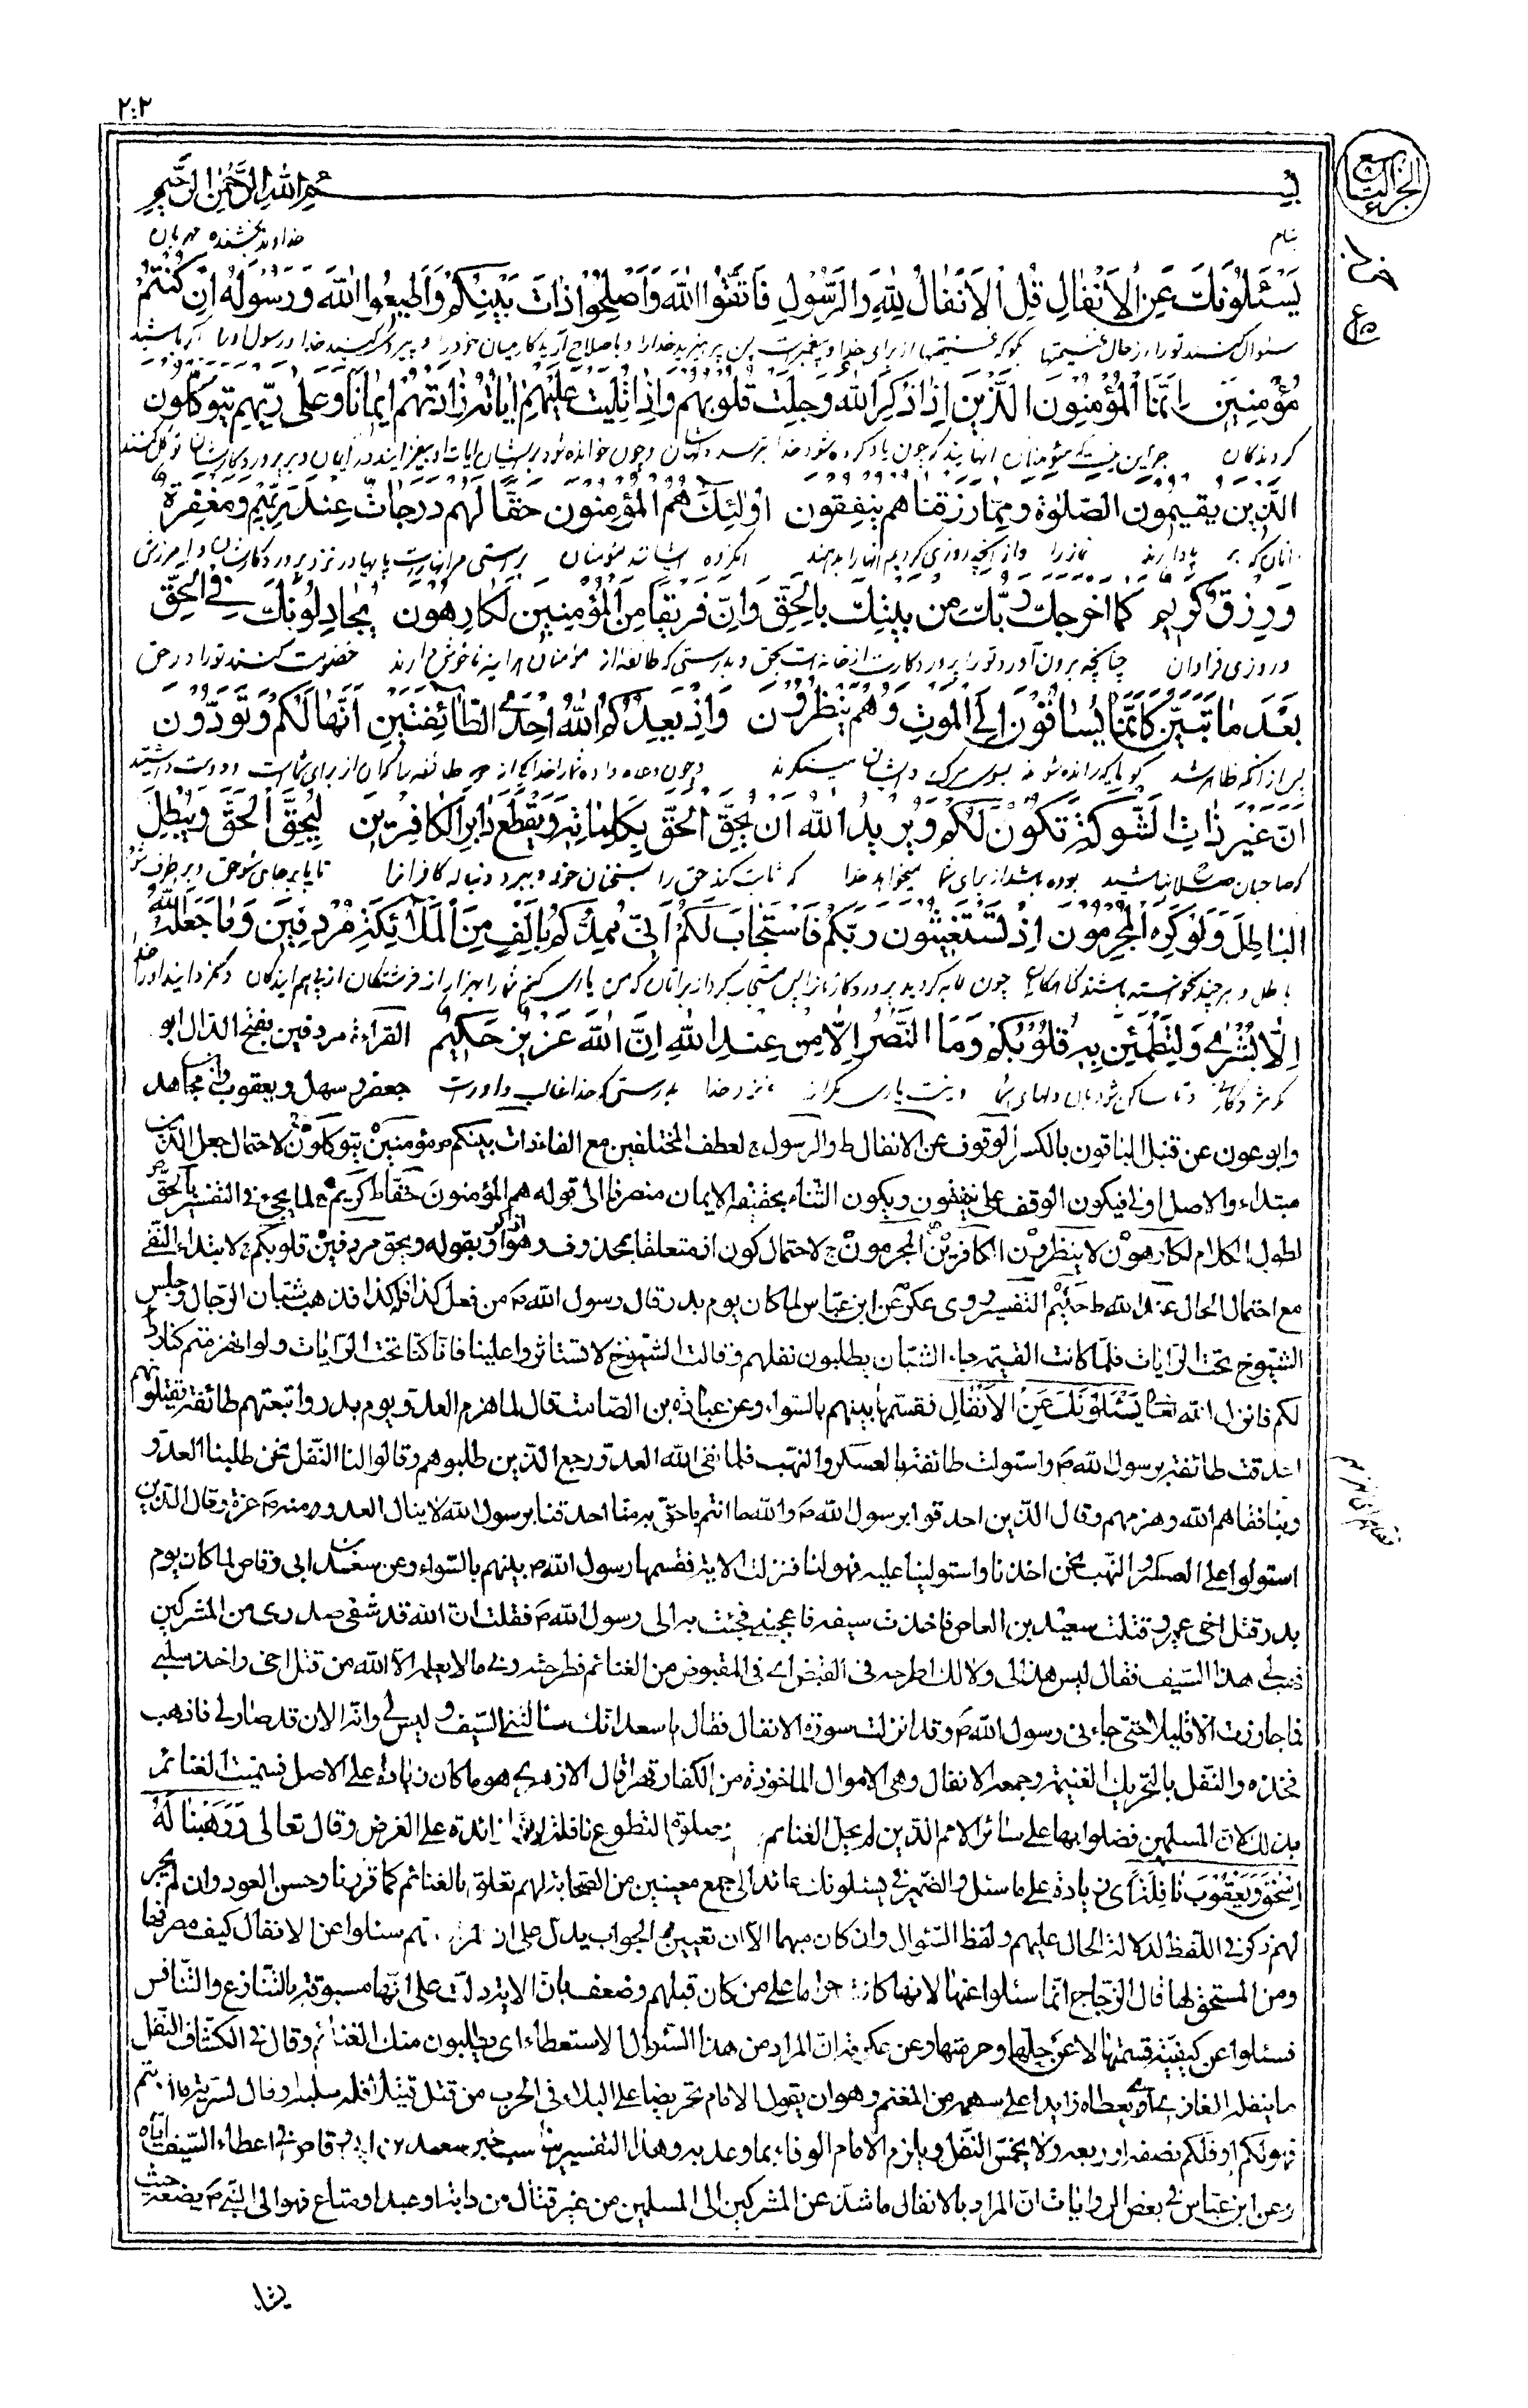 ٢٠٢
الجزء التاسع
بسم الله الرحمن الرحيم
بنام خداوند بخشنده مهربان
يَسْئَلُونَكَ عَنِ الْأَنْفَالِ قُلِ الْأَنْفَالُ لِلّٰهِ وَالرَّسُولِ فَاتَّقُوا اللّٰهَ وَأَصْلِحُوا ذَاتَ بَيْنِكُمْ وَأَطِيعُوا اللّٰهَ وَرَسُولَهُ اِنْ كُنْتُمْ
سئوال کنند تو را از حال غنیمتها بگو که غنیمتها از برای خدا و پیغمبر است پس بپرهیزید خدا را و باصلاح آرید کار میان خود را و پیروی کنید خدا و رسول او را اگر باشید
مُؤْمِنِينَ اِنَّمَا الْمُؤْمِنُونَ الَّذِينَ اِذَا ذُكِرَ اللّٰهُ وَجِلَتْ قُلُوبُهُمْ وَاِذَا تُلِيَتْ عَلَيْهِمْ اٰيَاتُهُ زَادَتْهُمْ اِيمَانًا وَعَلٰى رَبِّهِمْ يَتَوَكَّلُونَ
گروندگان جز این نیست که مؤمنان آنهایند که چون یاد کرده شود خدا بترسد دلهاشان و چون خوانده شود بر ایشان ایات او بیفزایند در ایمان و بر پروردگارشان توکل کنند
الَّذِينَ يُقِيمُونَ الصَّلٰوةَ وَمِمَّا رَزَقْنَاهُمْ يُنْفِقُونَ اُولٰئِكَ هُمُ الْمُؤْمِنُونَ حَقًّا لَهُمْ دَرَجَاتٌ عِنْدَ رَبِّهِمْ وَمَغْفِرَةٌ
آنان که بر پا دارند نماز را و از آنچه روزی کردیم آنها را بدهند آنگروه ایشانند مؤمنان براستی مر آنها راست پایها در نزد پروردگارشان و امرزش
وَرِزْقٌ كَرِيمٌ كَمَا اَخْرَجَكَ رَبُّكَ مِنْ بَيْتِكَ بِالْحَقِّ وَاِنَّ فَرِيقًا مِنَ الْمُؤْمِنِينَ لَكَارِهُونَ يُجَادِلُونَكَ فِي الْحَقِّ
و روزی فراوان چنانچه برون آورد تو را پروردگارت از خانه‌ات بحق و بدرستی که طائفه از مؤمنان هر اینه ناخوش دارند خصومت کنند تو را در حق
بَعْدَ مَا تَبَيَّنَ كَاَنَّمَا يُسَاقُونَ اِلَى الْمَوْتِ وَهُمْ يَنْظُرُونَ وَاِذْ يَعِدُكُمُ اللّٰهُ اِحْدَى الطَّائِفَتَيْنِ اَنَّهَا لَكُمْ وَتَوَدُّونَ
پس از آنکه ظاهر شد گویا که رانده شوند بسوی مرگ و ایشان مینگرند و چون وعده داد شما را خدا یکی از دو طائفه را که آن از برای شماست و دوست داشتید
اَنَّ غَيْرَ ذَاتِ الشَّوْكَةِ تَكُونُ لَكُمْ وَيُرِيدُ اللّٰهُ اَنْ يُحِقَّ الْحَقَّ بِكَلِمَاتِهِ وَيَقْطَعَ دَابِرَ الْكَافِرِينَ لِيُحِقَّ الْحَقَّ وَيُبْطِلَ
بوده باشد از برای شما میخواهد خدا که ثابت کند حق را بسخنان خود و ببرد دنباله کافرانرا تا پا بر جای شود حق و بر طرف شود
الْبَاطِلَ وَلَوْ كَرِهَ الْمُجْرِمُونَ اِذْ تَسْتَغِيثُونَ رَبَّكُمْ فَاسْتَجَابَ لَكُمْ اَنِّي مُمِدُّكُمْ بِاَلْفٍ مِنَ الْمَلٰائِكَةِ مُرْدِفِينَ وَمَا جَعَلَهُ اللّٰهُ
باطل و هر چند نخواسته باشند گناهکاران
اِلَّا بُشْرٰى وَلِتَطْمَئِنَّ بِهِ قُلُوبُكُمْ وَمَا النَّصْرُ اِلَّا مِنْ عِنْدِ اللّٰهِ اِنَّ اللّٰهَ عَزِيزٌ حَكِيمٌ القراءة مردفين بفتح الدال ابو
و تا ساکن شود بان دلهای شما و نیست یاری مگر از نزد خدا بدرستی که خدا غالب و داورست جعفر وسهل ويعقوب وابن مجاهد
وابو عون عن قنبل الباقون بالكسر الوقوف عن الانفال ط والرسول ج لعطف المختلفين مع الفاء ذات بينكم ص مؤمنين يتوكلون لاحتمال جعل الذين
مبتداء والاصل اولى فيكون الوقف على ينفقون ويكون الثناء بحقيقة الايمان منصرفا الى قوله هم المؤمنون حقا ط كريم لما يجئ فى التفسير بالحق
لطول الكلام لكارهون لا ينظرون الكافرين المجرمون ج لاحتمال كون اذ متعلقا بمحذوف هو اذكر او بقوله ويحق مردفين قلوبكم ج لابتداء النفى
مع احتمال الحال عند الله ط حكيم التفسير روى عكرمة عن ابن عباس لما كان يوم بدر قال رسول الله ص من فعل كذا فله كذا فذهب شبان الرجال وجلس
الشيوخ تحت الرايات فلما كانت القسمة جاء الشبان يطلبون نفلهم وقالت الشيوخ لا تستأثروا علينا فانا كنا تحت الرايات ولو انهزمتم كنا ردءا
لكم فانزل الله تعالى يَسْئَلُونَكَ عَنِ الْأَنْفَالِ فقسمها بينهم بالسواء وعن عبادة بن الصامت قال لما هزم العدو يوم بدر واتبعتهم طائفة يقتلونهم
احدقت طائفة برسول الله ص واستولت طائفة بالعسكر والنهب فلما نفى الله العدو ورجع الذين طلبوهم وقالوا لنا النفل نحن طلبنا العدو
وبنا نفاهم الله وهزمهم وقال الذين احدقوا برسول الله ص والله ما انتم باحق به منا احدقنا برسول الله لا ينال العدو منه ص غرة وقال الذين
استولوا على العسكر والنهب نحن اخذنا واستولينا عليه فهو لنا فنزلت الاية فقسمها رسول الله ص بينهم بالسواء وعن سعد بن ابى وقاص لما كان يوم
بدر قتل اخى عمير وقتلت سعيد بن العاص فاخذت سيفه فاعجبنى فجئت به الى رسول الله ص فقلت ان الله قد شفى صدرى من المشركين
فهب لى هذا السيف فقال ليس هذا لى ولا لك اطرحه فى القبض اى فى المقبوض من الغنائم فطرحته وبى ما لا يعلمه الا الله من قتل اخى واخذ سلبى
فما جاوزت الا قليلا حتى جاءنى رسول الله ص وقد انزلت سورة الانفال فقال يا سعد انك سألتنى السيف وليس لى وانه الان قد صار لى فاذهب
فخذه والنفل بالتحريك الغنيمة وجمعه الانفال وهى الاموال الماخوذة من الكفار قهرا قال الازهرى هو ما كان زيادة على الاصل فسميت الغنائم
بذلك لان المسلمين فضلوا بها على سائر الامم الذين لم يحل الغنائم لهم وصلوة التطوع نافلة لانها زائدة على الفرض وقال تعالى وَوَهَبْنَا لَهُ
اِسْحٰقَ وَيَعْقُوبَ نَافِلَةً اى زيادة على ما سئل والضمير فى يسئلونك عائد الى جمع معينين من الصحابة لهم تعلق بالغنائم كما قررنا وحسن العود وان لم يجر
لهم ذكر فى اللفظ لدلالة الحال عليهم ولفظ السئوال وان كان مبهما الا ان تعيين الجواب يدل على انهم سئلوا عن الانفال كيف مصرفها
ومن المستحق لها قال الزجاج انما سئلوا عنها لانها كانت حراما على من كان قبلهم وضعف بان الاية دلت على انها مسبوقة بالتنازع والتنافس
فسئلوا عن كيفية قسمتها لا عن حلها وحرمتها وعن عكرمة ان المراد من هذا السئوال الاستعطاء اى يطلبون منك الغنائم وقال فى الكشاف النفل
ما ينفله الغازى اى يعطاه زايدا على سهمه من المغنم وهو ان يقول الامام تحريضا على البلاء فى الحرب من قتل قتيلا فله سلبه او قال لسرية ما اصبتم
فهو لكم او فلكم نصفه او ربعه ولا يخمس النفل ويلزم الامام الوفاء بما وعد به وهذا التفسير يناسب خبر سعد بن ابى وقاص فى اعطاء السيف اياه
وعن ابن عباس فى بعض الروايات ان المراد بالانفال ما شذ عن المشركين الى المسلمين من غير قتال من دابة او عبد او متاع فهو الى النبى ص يضعه حيث
يشاء